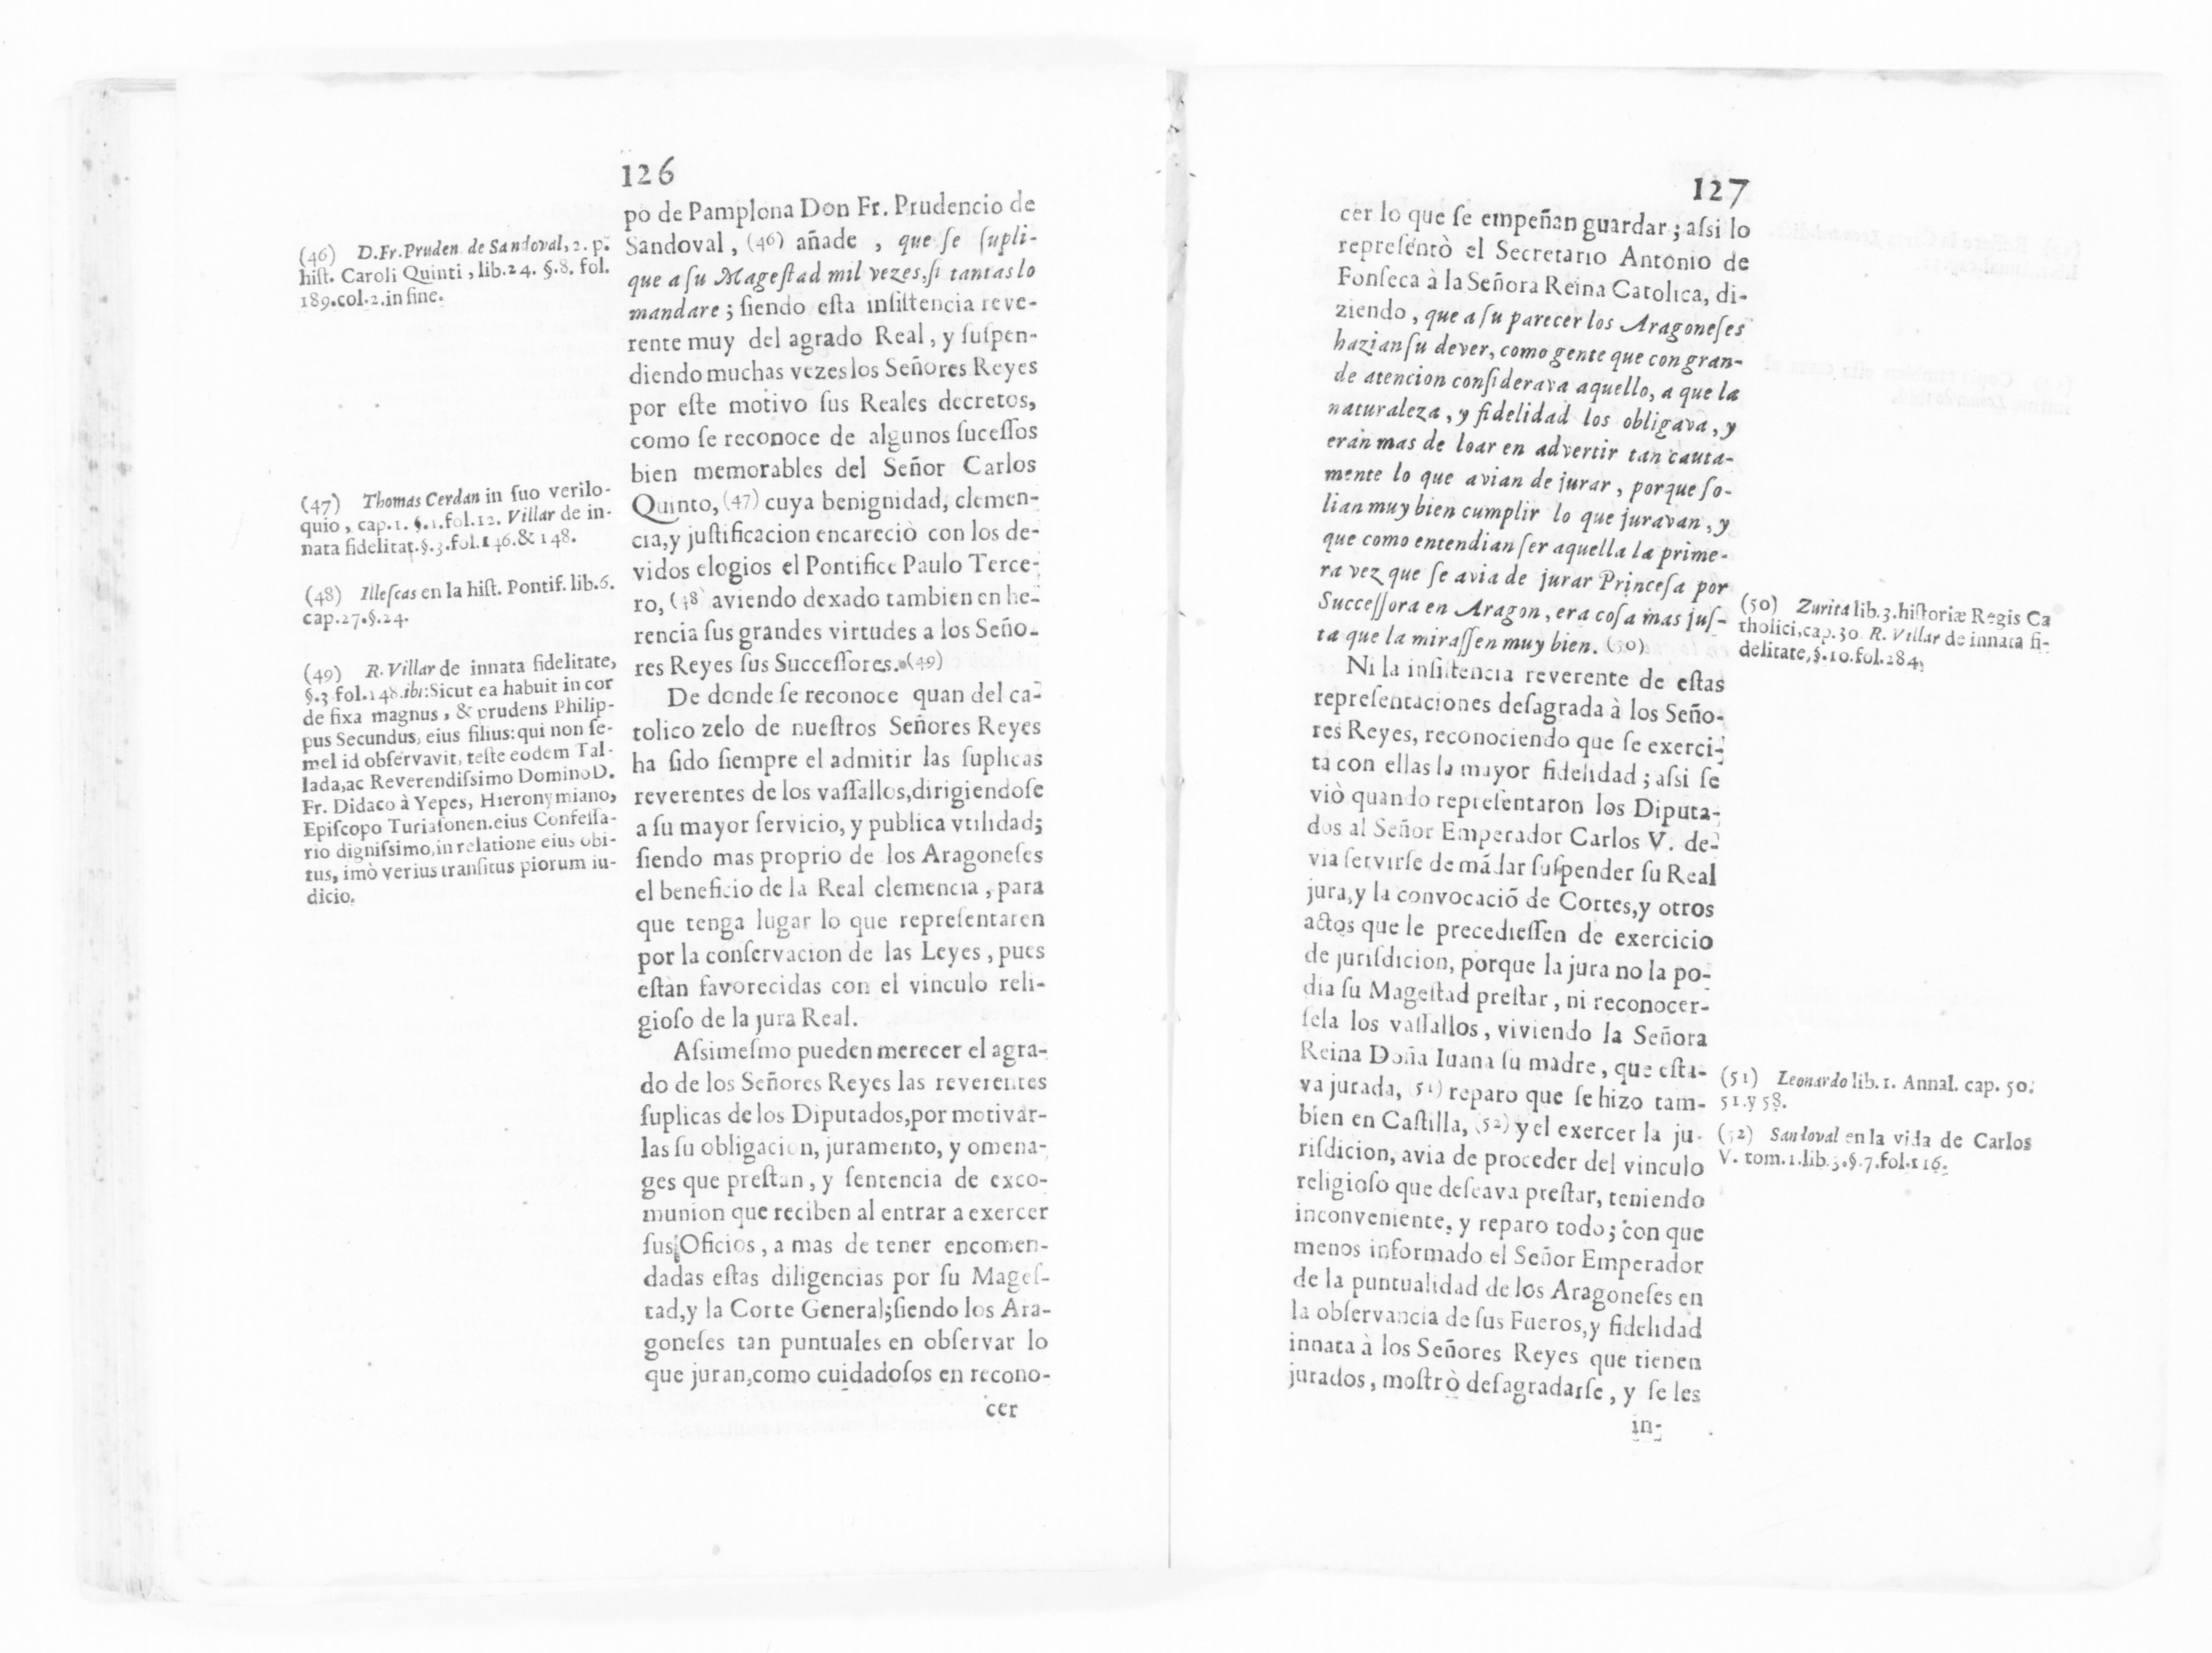 126
po de Pamplona Don Fr. Prudencio de
Sandoval, (46) añade, que se supli-
que a su Magestad mil vezes, si tantas lo
mandare; siendo esta insistencia reve-
rente muy del agrado Real, y suspen-
diendo muchas vezes los Señores Reyes
por este motivo sus Reales decretos,
como se reconoce de algunos sucessos
bien memorables del Señor Carlos
Quinto, (47) cuya benignidad, clemen-
cia, y justificacion encareciò con los de-
vidos elogios el Pontifice Paulo Terce-
ro, (48) aviendo dexado tambien en he-
rencia sus grandes virtudes a los Seño-
res Reyes sus Successores. (49)
De donde se reconoce quan del ca-
tolico zelo de nuestros Señores Reyes
ha sido siempre el admitir las suplicas
reverentes de los vassallos, dirigiendose
a su mayor servicio, y publica vtilidad;
siendo mas proprio de los Aragoneses
el beneficio de la Real clemencia, para
que tenga lugar lo que representaren
por la conservacion de las Leyes, pues
estàn favorecidas con el vinculo reli-
gioso de la jura Real.
Assimesmo pueden merecer el agra-
do de los Señores Reyes las reverentes
suplicas de los Diputados, por motivar-
las su obligacion, juramento, y omena-
ges que prestan, y sentencia de exco-
munion que reciben al entrar a exercer
sus Oficios, a mas de tener encomen-
dadas estas diligencias por su Mages-
tad, y la Corte General; siendo los Ara-
goneses tan puntuales en observar lo
que juran, como cuidadosos en recono-
cer
(46) D. Fr. Pruden. de Sandoval, 2. p.
hist. Caroli Quinti, lib. 24. §. 8. fol.
189. col. 2. in fine.
(47) Thomas Cerdan in suo verilo-
quio, cap. 1. §. 1. fol. 12. Villar de in-
nata fidelitat. §. 3. fol. 146. & 148.
(48) Illescas en la hist. Pontif. lib. 6.
cap. 27. §. 24.
(49) R. Villar de innata fidelitate,
§. 3 fol. 148. ibi: Sicut ea habuit in cor
de fixa magnus, & prudens Philip-
pus Secundus, eius filius: qui non se-
mel id observavit, teste eodem Tal-
lada, ac Reverendissimo Domino D.
Fr. Didaco à Yepes, Hieronymiano,
Episcopo Turiasonen. eius Confessa-
rio dignissimo, in relatione eius obi-
tus, imò verius transitus piorum iu-
dicio.
127
cer lo que se empeñan guardar; assi lo
representò el Secretario Antonio de
Fonseca à la Señora Reina Catolica, di-
ziendo, que a su parecer los Aragoneses
hazian su dever, como gente que con gran-
de atencion considerava aquello, a que la
naturaleza, y fidelidad los obligava, y
eran mas de loar en advertir tan cauta-
mente lo que avian de jurar, porque so-
lian muy bien cumplir lo que juravan, y
que como entendian ser aquella la prime-
ra vez que se avia de jurar Princesa por
Successora en Aragon, era cosa mas jus-
ta que la mirassen muy bien. (50)
Ni la insistencia reverente de estas
representaciones desagrada à los Seño-
res Reyes, reconociendo que se exerci-
ta con ellas la mayor fidelidad; assi se
viò quando representaron los Diputa-
dos al Señor Emperador Carlos V. de-
via servirse de mãdar suspender su Real
jura, y la convocaciõ de Cortes, y otros
actos que le precediessen de exercicio
de jurisdicion, porque la jura no la po-
dia su Magestad prestar, ni reconocer-
sela los vassallos, viviendo la Señora
Reina Doña Iuana su madre, que esta-
va jurada, (51) reparo que se hizo tam-
bien en Castilla, (52) y el exercer la ju-
risdicion, avia de proceder del vinculo
religioso que deseava prestar, teniendo
inconveniente, y reparo todo; con que
menos informado el Señor Emperador
de la puntualidad de los Aragoneses en
la observancia de sus Fueros, y fidelidad
innata à los Señores Reyes que tienen
jurados, mostrò desagradarse, y se les
in-
(50) Zurita lib. 3. historiæ Regis Ca
tholici, cap. 30. R. Villar de innata fi-
delitate, §. 10. fol. 284.
(51) Leonardo lib. 1. Annal. cap. 50.
51. y 58.
(52) Sandoval en la vida de Carlos
V. tom. 1. lib. 3. §. 7. fol. 116.